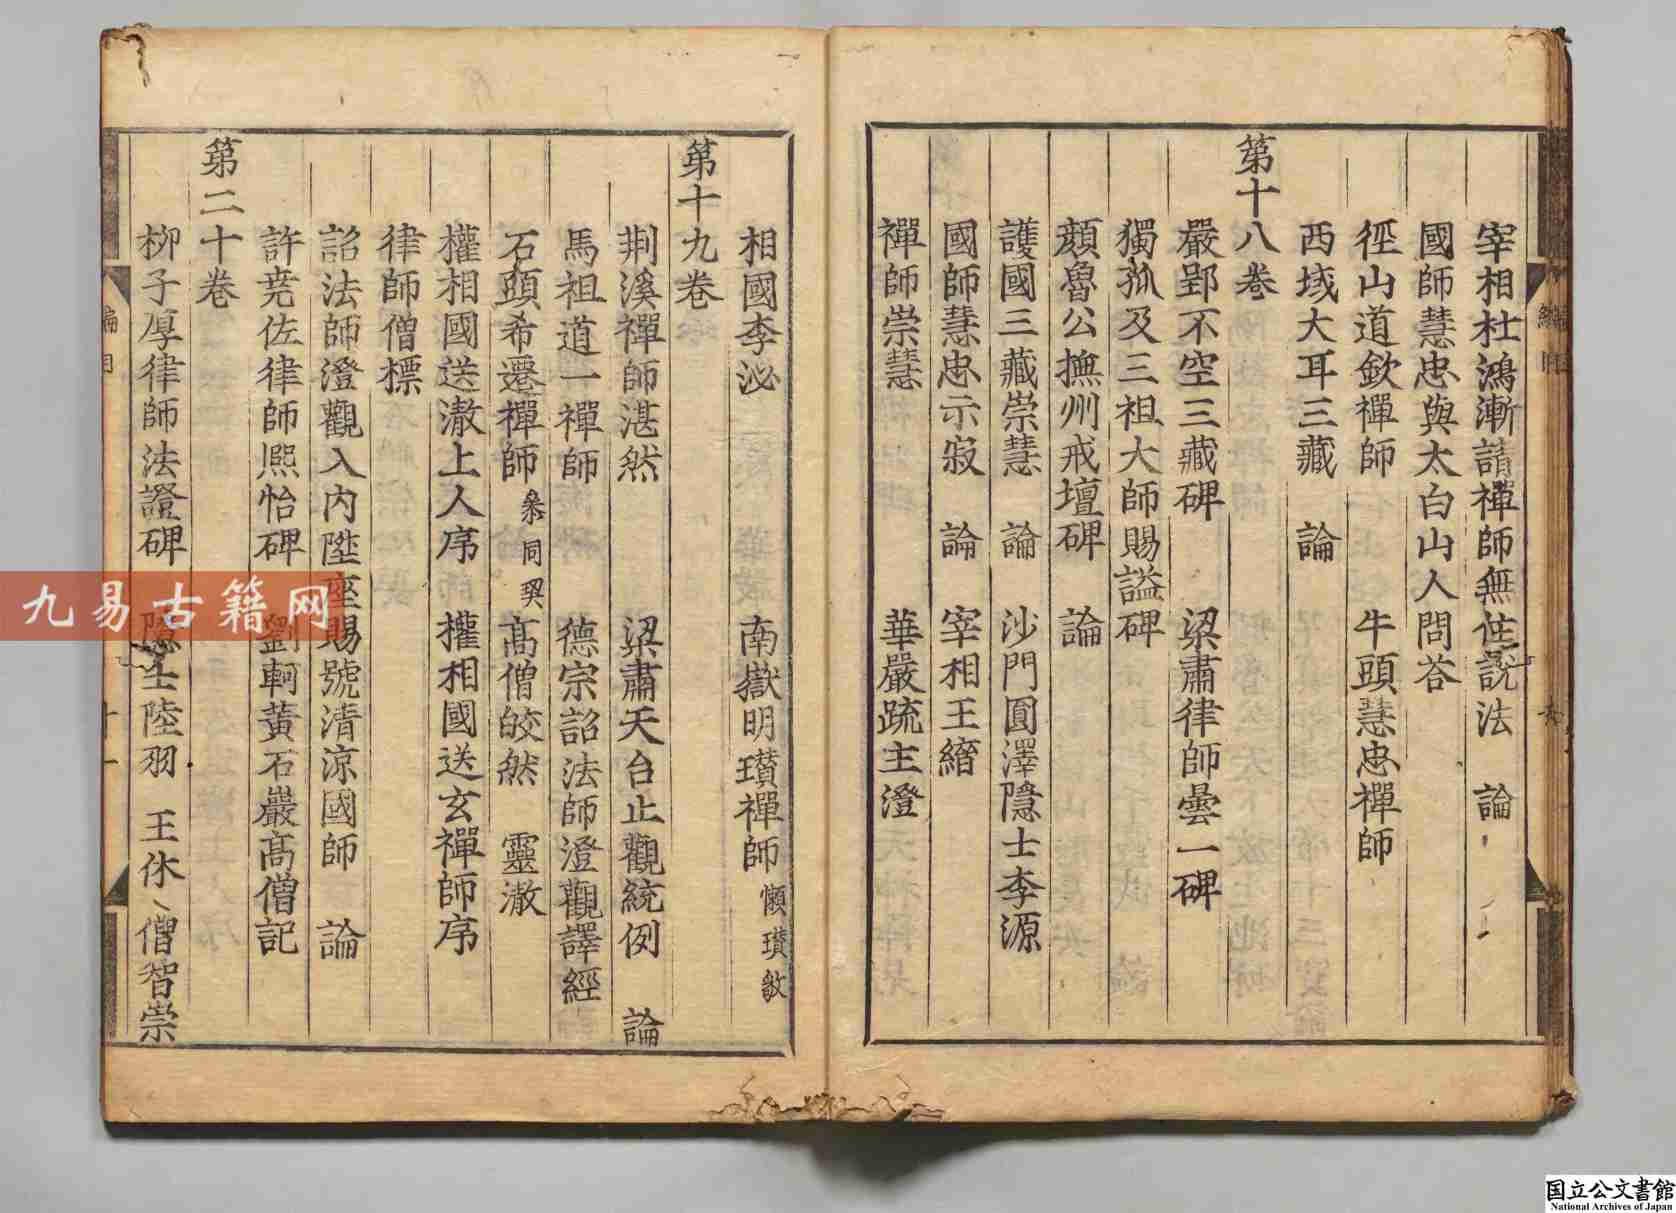 宰相杜鴻漸請禪師無住說法　論
國師慧忠與太白山人問答
徑山道欽禪師　牛頭慧忠禪師
西域大耳三藏　論
第十八卷
嚴郢不空三藏碑　梁肅律師曇一碑
獨孤及三祖大師賜謚碑
顏魯公撫州戒壇碑　論
護國三藏崇慧　論　沙門圓澤隱士李源
國師慧忠示寂　論　宰相王縉
禪師崇慧　華嚴疏主澄
相國李泌　南嶽明瓚禪師　懶瓚
第十九卷
荆溪禪師湛然　梁肅天台止觀統例　論
馬祖道一禪師　德宗詔法師澄觀譯經
石頭希遷禪師　叅同契　髙僧皎然　靈澈
權相國送澈上人序　權相國送玄禪師序
律師僧標
詔法師澄觀入内陞座賜號清涼國師　論
許尭佐律師熈怡碑　劉軻黃石巖髙僧記
第二十卷
柳子厚律師法證碑　隱士陸羽　王休、僧智崇
九易古籍网
国立公文書館
National Archives of Japan